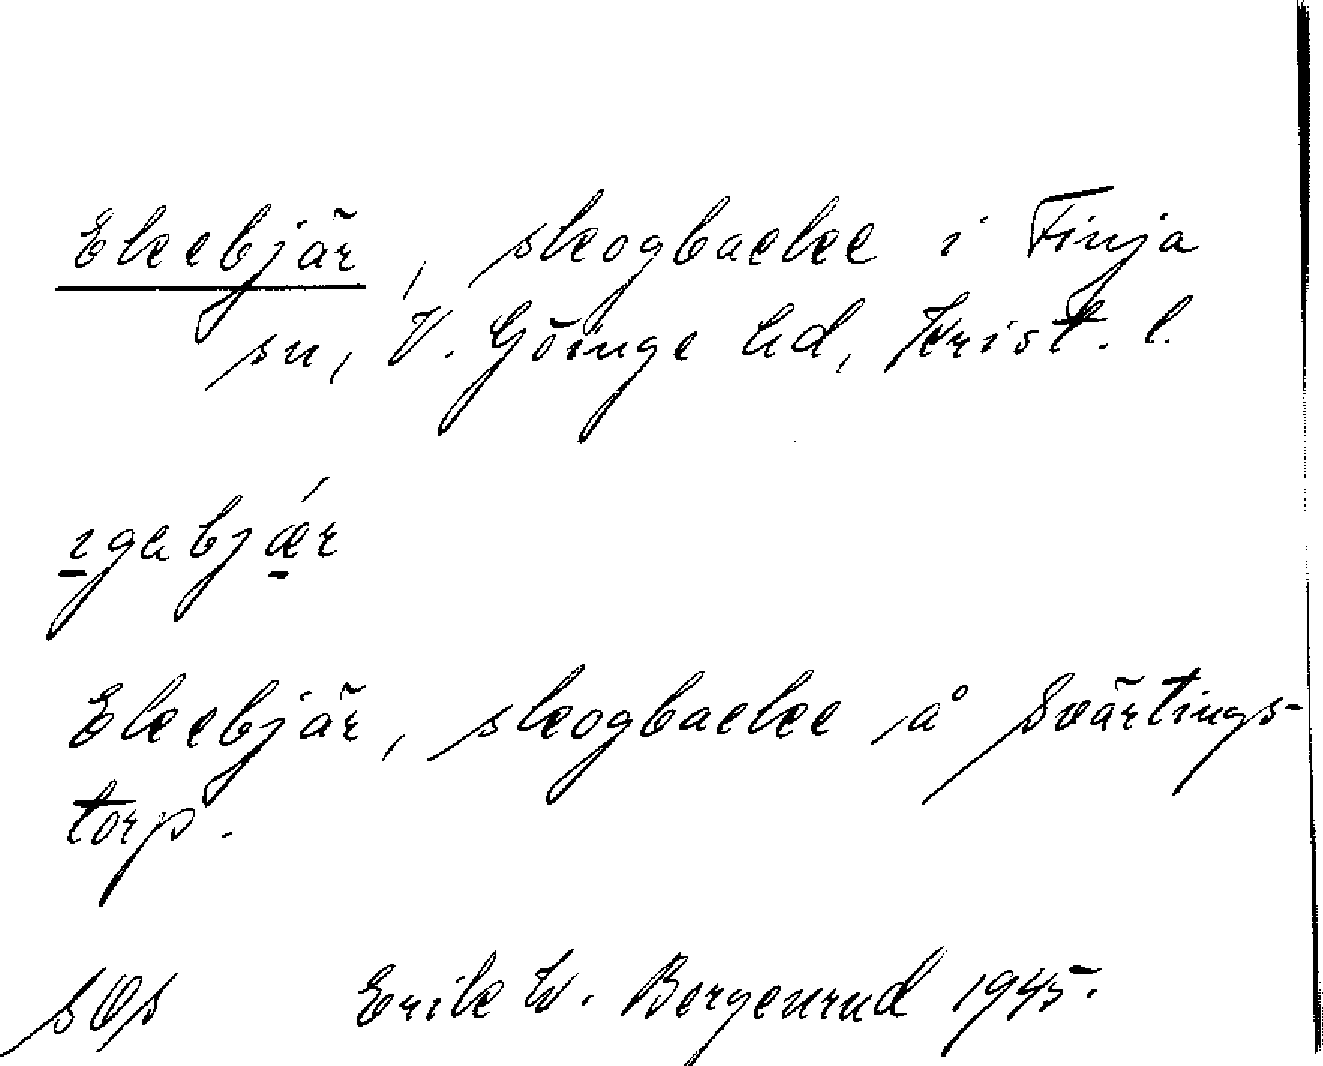 Ekebjär, skogbacke i Finja
sn, V. Göinge hd, Krist. l.
egabjǽr
Ekebjär, skogbacke å Svärtings-
torp.
sOs Erik W. Bergenrud 1945.